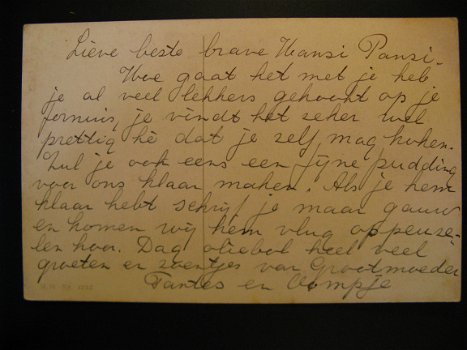 Lieve beste brave Hansi Pansi.
Hoe gaat het met je heb
je al veel lekkers gekookt op je
fornuis, je vindt het seker wel
prettig hè dat je zelf mag koken.
Zul je ook eens een fijne pudding
voor ons klaar maken. Als je hem
klaar hebt schrijf je maar gauw
en komen wij hem vlug oppeuze-
len hoor. Dag oliebol heel veel
groeten en zoentjes van Grootmoeder
Tantes en Oompje